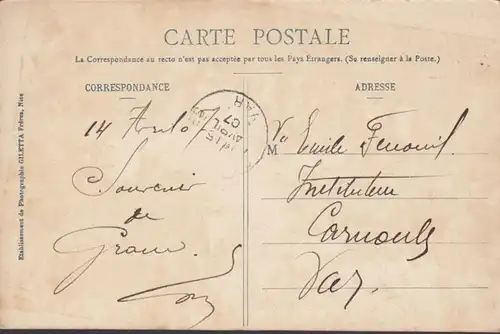 CARTE POSTALE
La Correspondance au recto n'est pas acceptée par tous les Pays Étrangers. (Se renseigner à la Poste.)
CORRESPONDANCE
ADRESSE
Etablissement de Photographie GILETTA Frères, Nice
14
Souvenir
de
AVRIL
07
VAR
M
Emile Fenouil
Instituteur
Carnoules
Var.